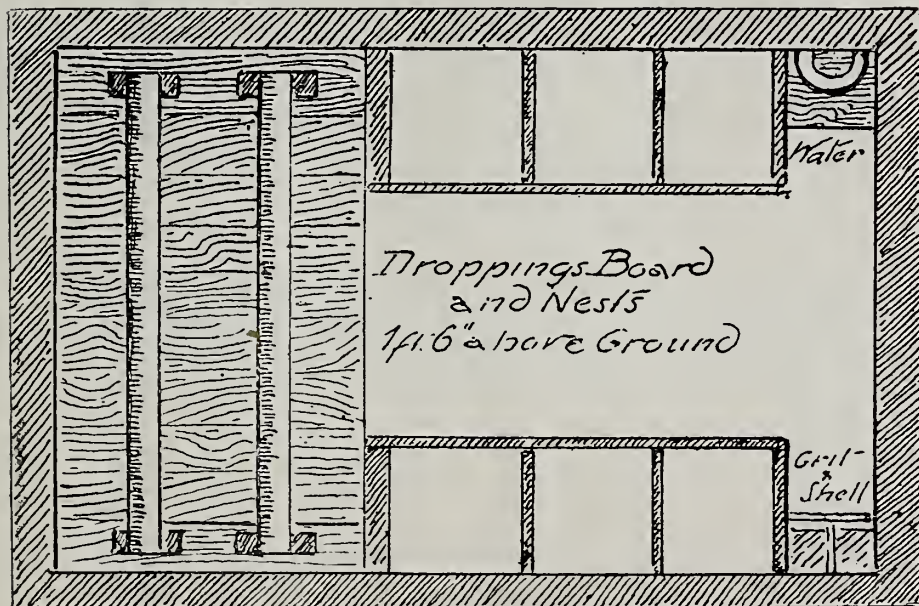 Water
Droppings Board
and Nests
1ft. 6" above Ground
Grit
&
Shell